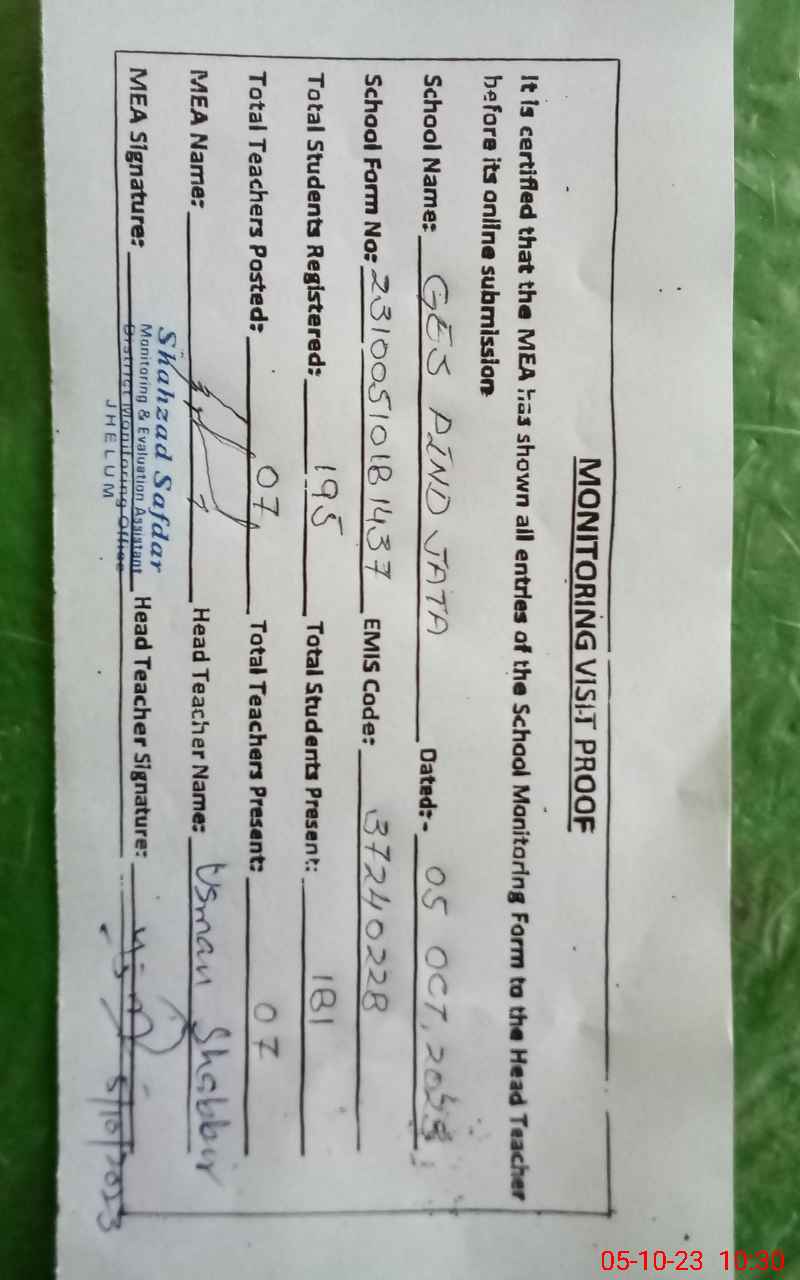 MONITORING VISIT PROOF
It is certified that the MEA has shown all entries of the School Monitoring Form to the Head Teacher
before its online submission
School Name: GES PIND JATA Dated:- 05 OCT, 2023
School Form No: 23100510181437 EMIS Code: 37240228
Total Students Registered: 195 Total Students Present: 181
Total Teachers Posted: 07 Total Teachers Present: 07
MEA Name: Head Teacher Name: Usman Shabbir
MEA Signature: Head Teacher Signature: 5/10/2023
Shahzad Safdar
Monitoring & Evaluation Assistant
District Monitoring Office
JHELUM
05-10-23 10:30